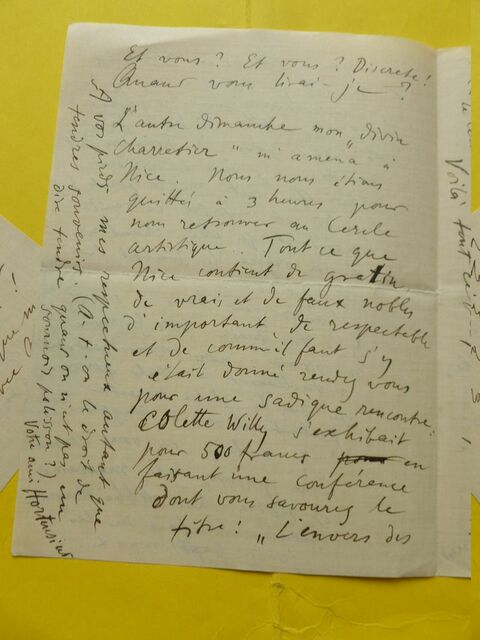 Et vous ? Et vous ? Discrète !
Quand vous lirai-je ?
L'autre dimanche mon „divin
charretier" m'amena à
Nice. Nous nous étions
quittés à 3 heures pour
nous retrouver au Cercle
artistique. Tout ce que
Nice contient de gratin,
de vrais et de faux nobles
d'important, de respectable
et de comm'il faut s'y
était donné rendez vous
pour une sadique rencontre:
Colette Willy s'exhibait
pour 500 francs en
faisant une conférence
dont vous savourez le
titre ! „L'envers des
A vos pieds mes respectueux autant que
tendres souvenirs. (A-t-on le droit de
dire tendre quand on n'est pas un
polisson ?)
Votre ami Hortensius
Voilà tout